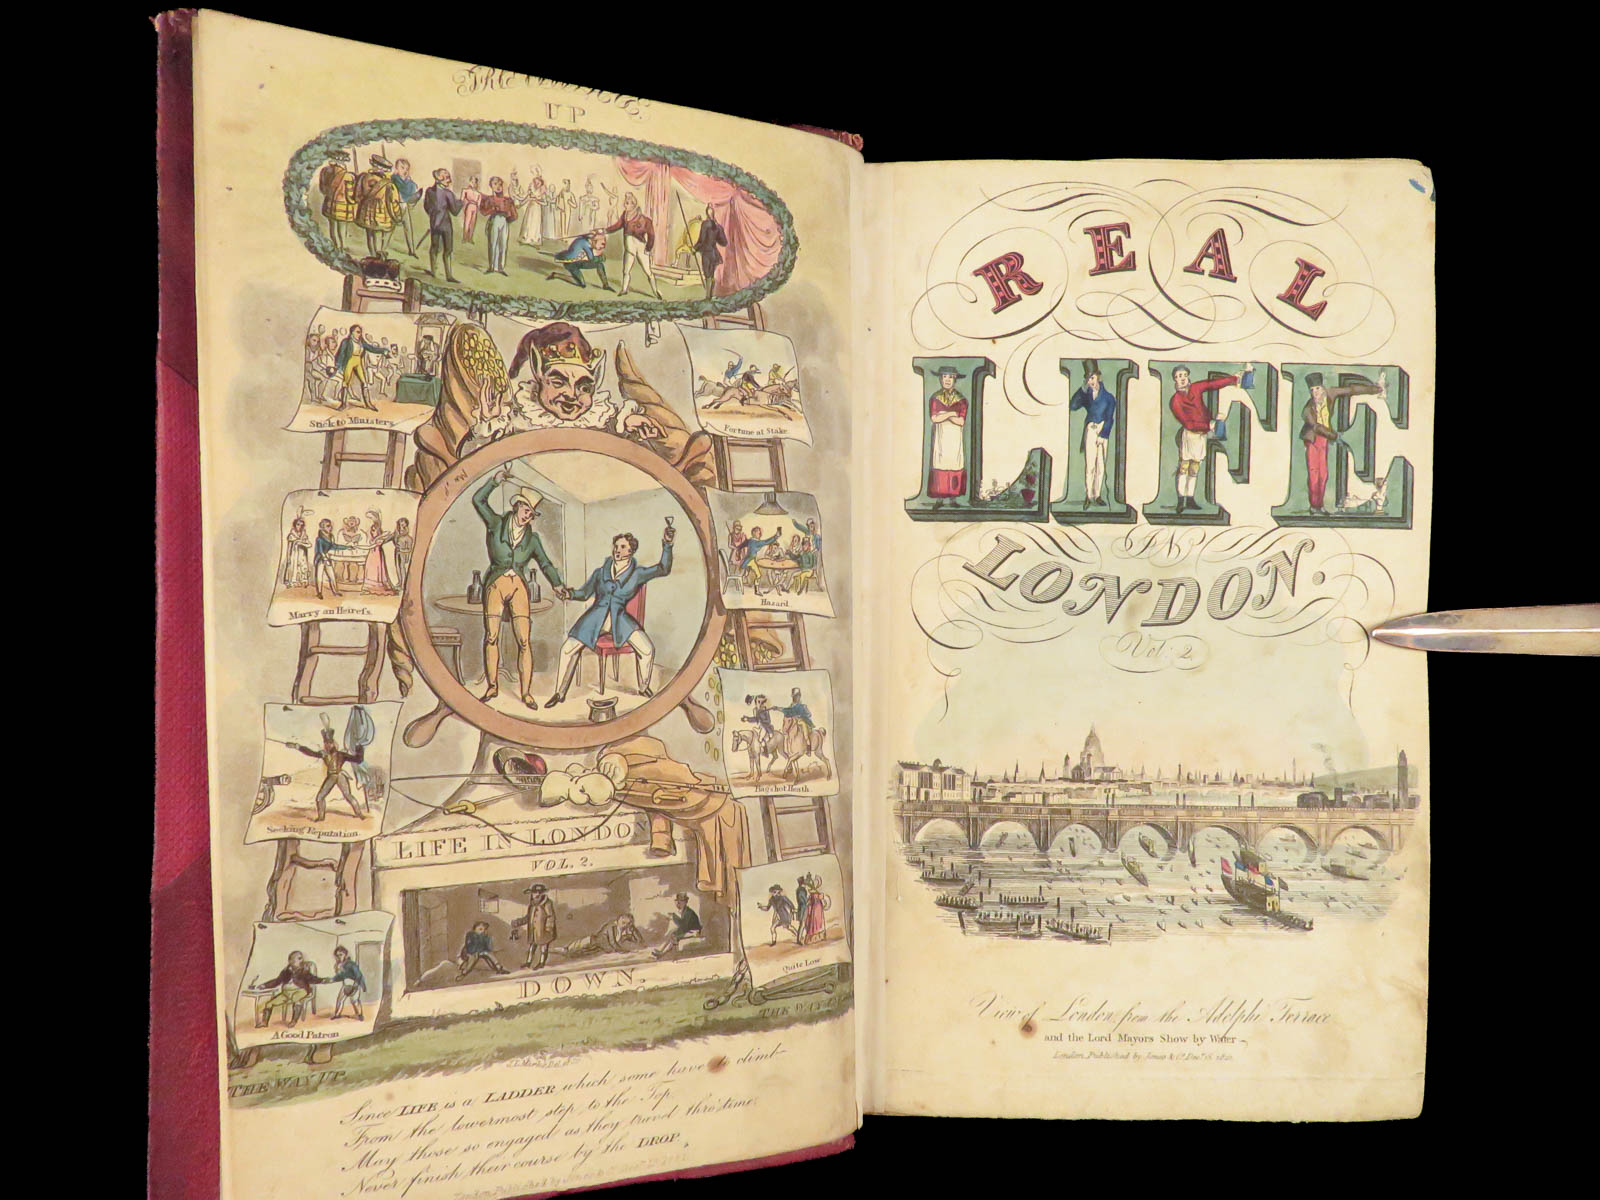 UP
Stick to Ministers
Fortune at Stake
Marry an Heiress.
Hazard.
Seeking Reputation.
Bagshot Heath.
LIFE IN LONDON
VOL. 2.
DOWN.
A Good Patron
Quite Low
THE WAY UP.
THE WAY
Since LIFE is a LADDER which some have to climb
From the lowermost step to the Top.
May those so engaged as they travel thro' time
Never finish their course by the DROP.
London, Published by Jones & Co.
REAL
LIFE
IN
LONDON.
Vol. 2
View of London from the Adelphi Terrace
and the Lord Mayors Show by Water
London, Published by Jones & Co.